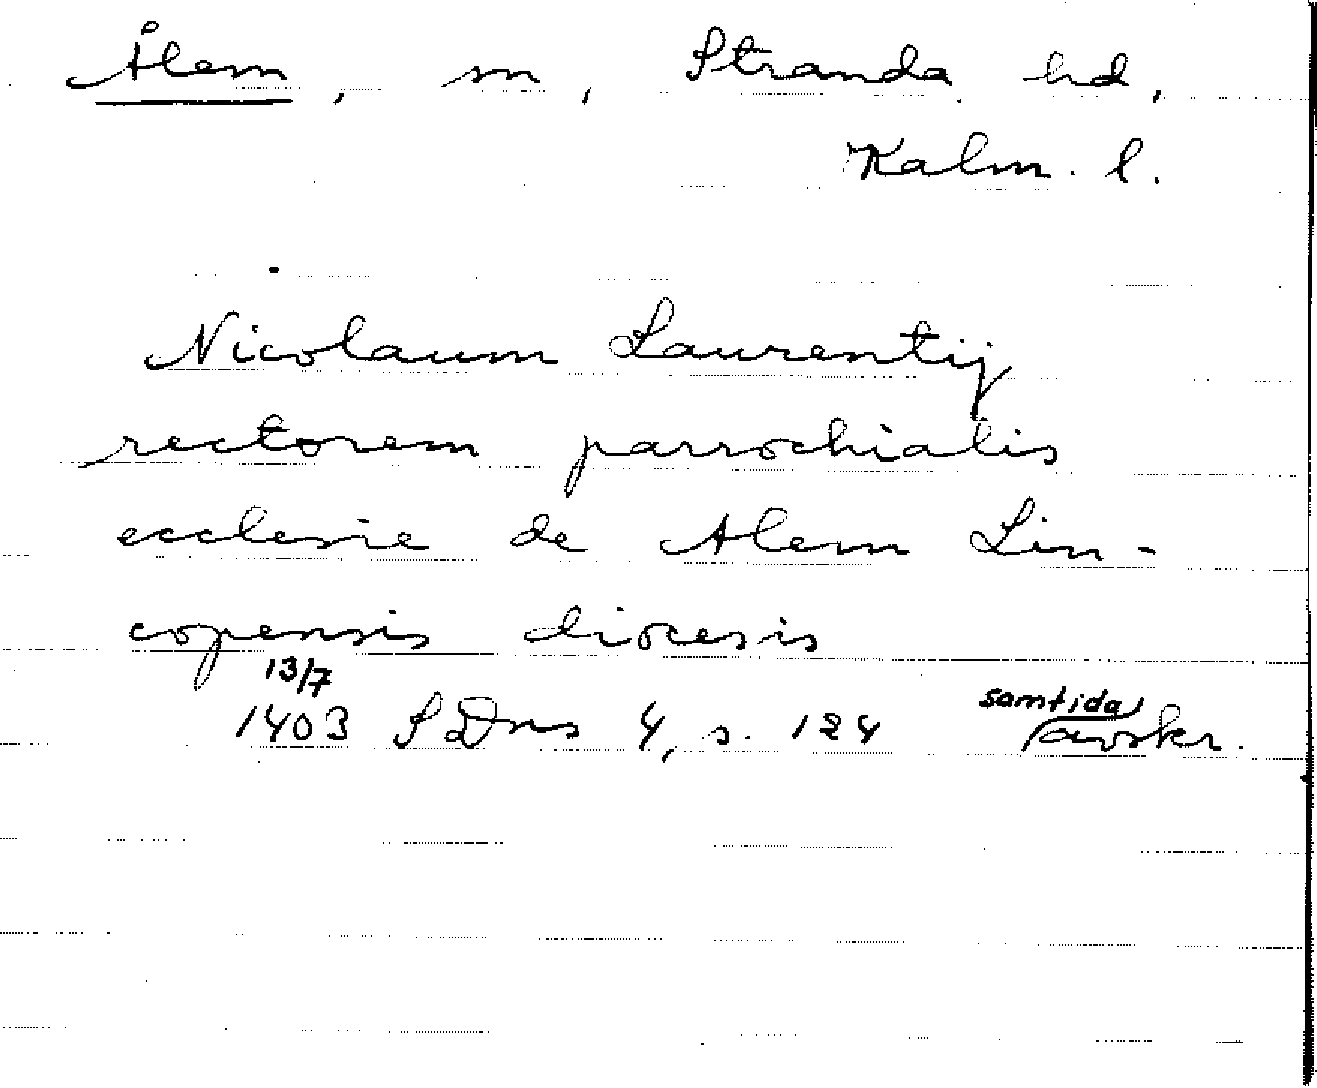 Ålem, sn, Stranda hd,
Kalm. l.
Nicolaum Laurentij
rectorem parrochialis
ecclesie de Alem Lin-
copensis diocesis
13/7
1403 SDns 4, s. 124 samtida avskr.